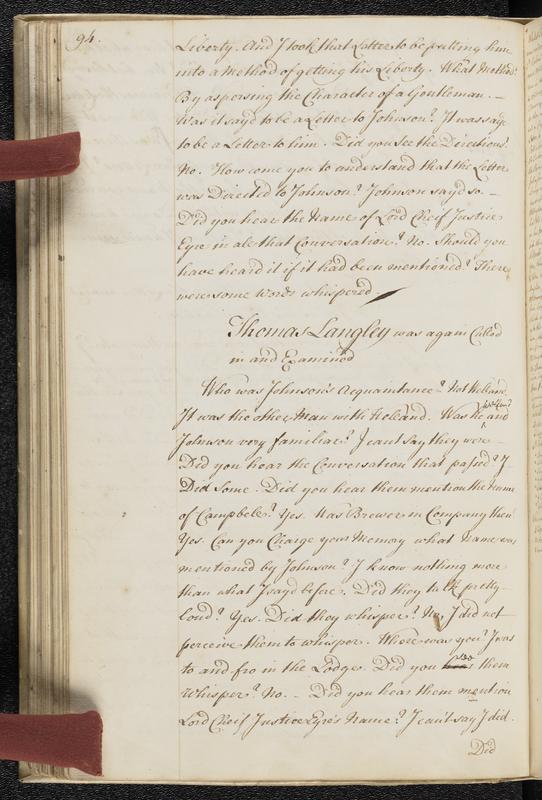 94.
Liberty. And I took that Letter to be putting him
into a Method of getting his Liberty. What Method?
By aspersing the Character of a Gentleman. —
Was it sayd to be a Letter to Johnson? It was sayd
to be a Letter to him. Did you see the Directions?
No. How come you to understand that the Letter
was Directed to Johnson? Johnson sayd so. —
Did you hear the Name of Lord Cheif Justice
Eyre in all that Conversation? No. Should you
have heard it if it had been mentioned? There
were some Words whispered.
Thomas Langley was again Called
in and Examined
Who was Johnson's Acquaintance? Not Holland.
It was the other Man with Holland. Was he and
Johnson very familiar? I cant say they were —
Did you hear the Conversation that passed? I
Did some. Did you hear them mention the Name
of Campbell? Yes. Was Brewer in Company then?
Yes. Can you Charge your Memory what Name was
mentioned by Johnson? I know nothing more
than what I sayd before. Did they talk pretty
loud? Yes. Did they whisper? No, I did not
perceive them to whisper. Where was you? I was
to and fro in the Lodge. Did you see them
Whisper? No. — Did you hear them mention
Lord Cheif Justice Eyre's Name? I can't say I did.
Did